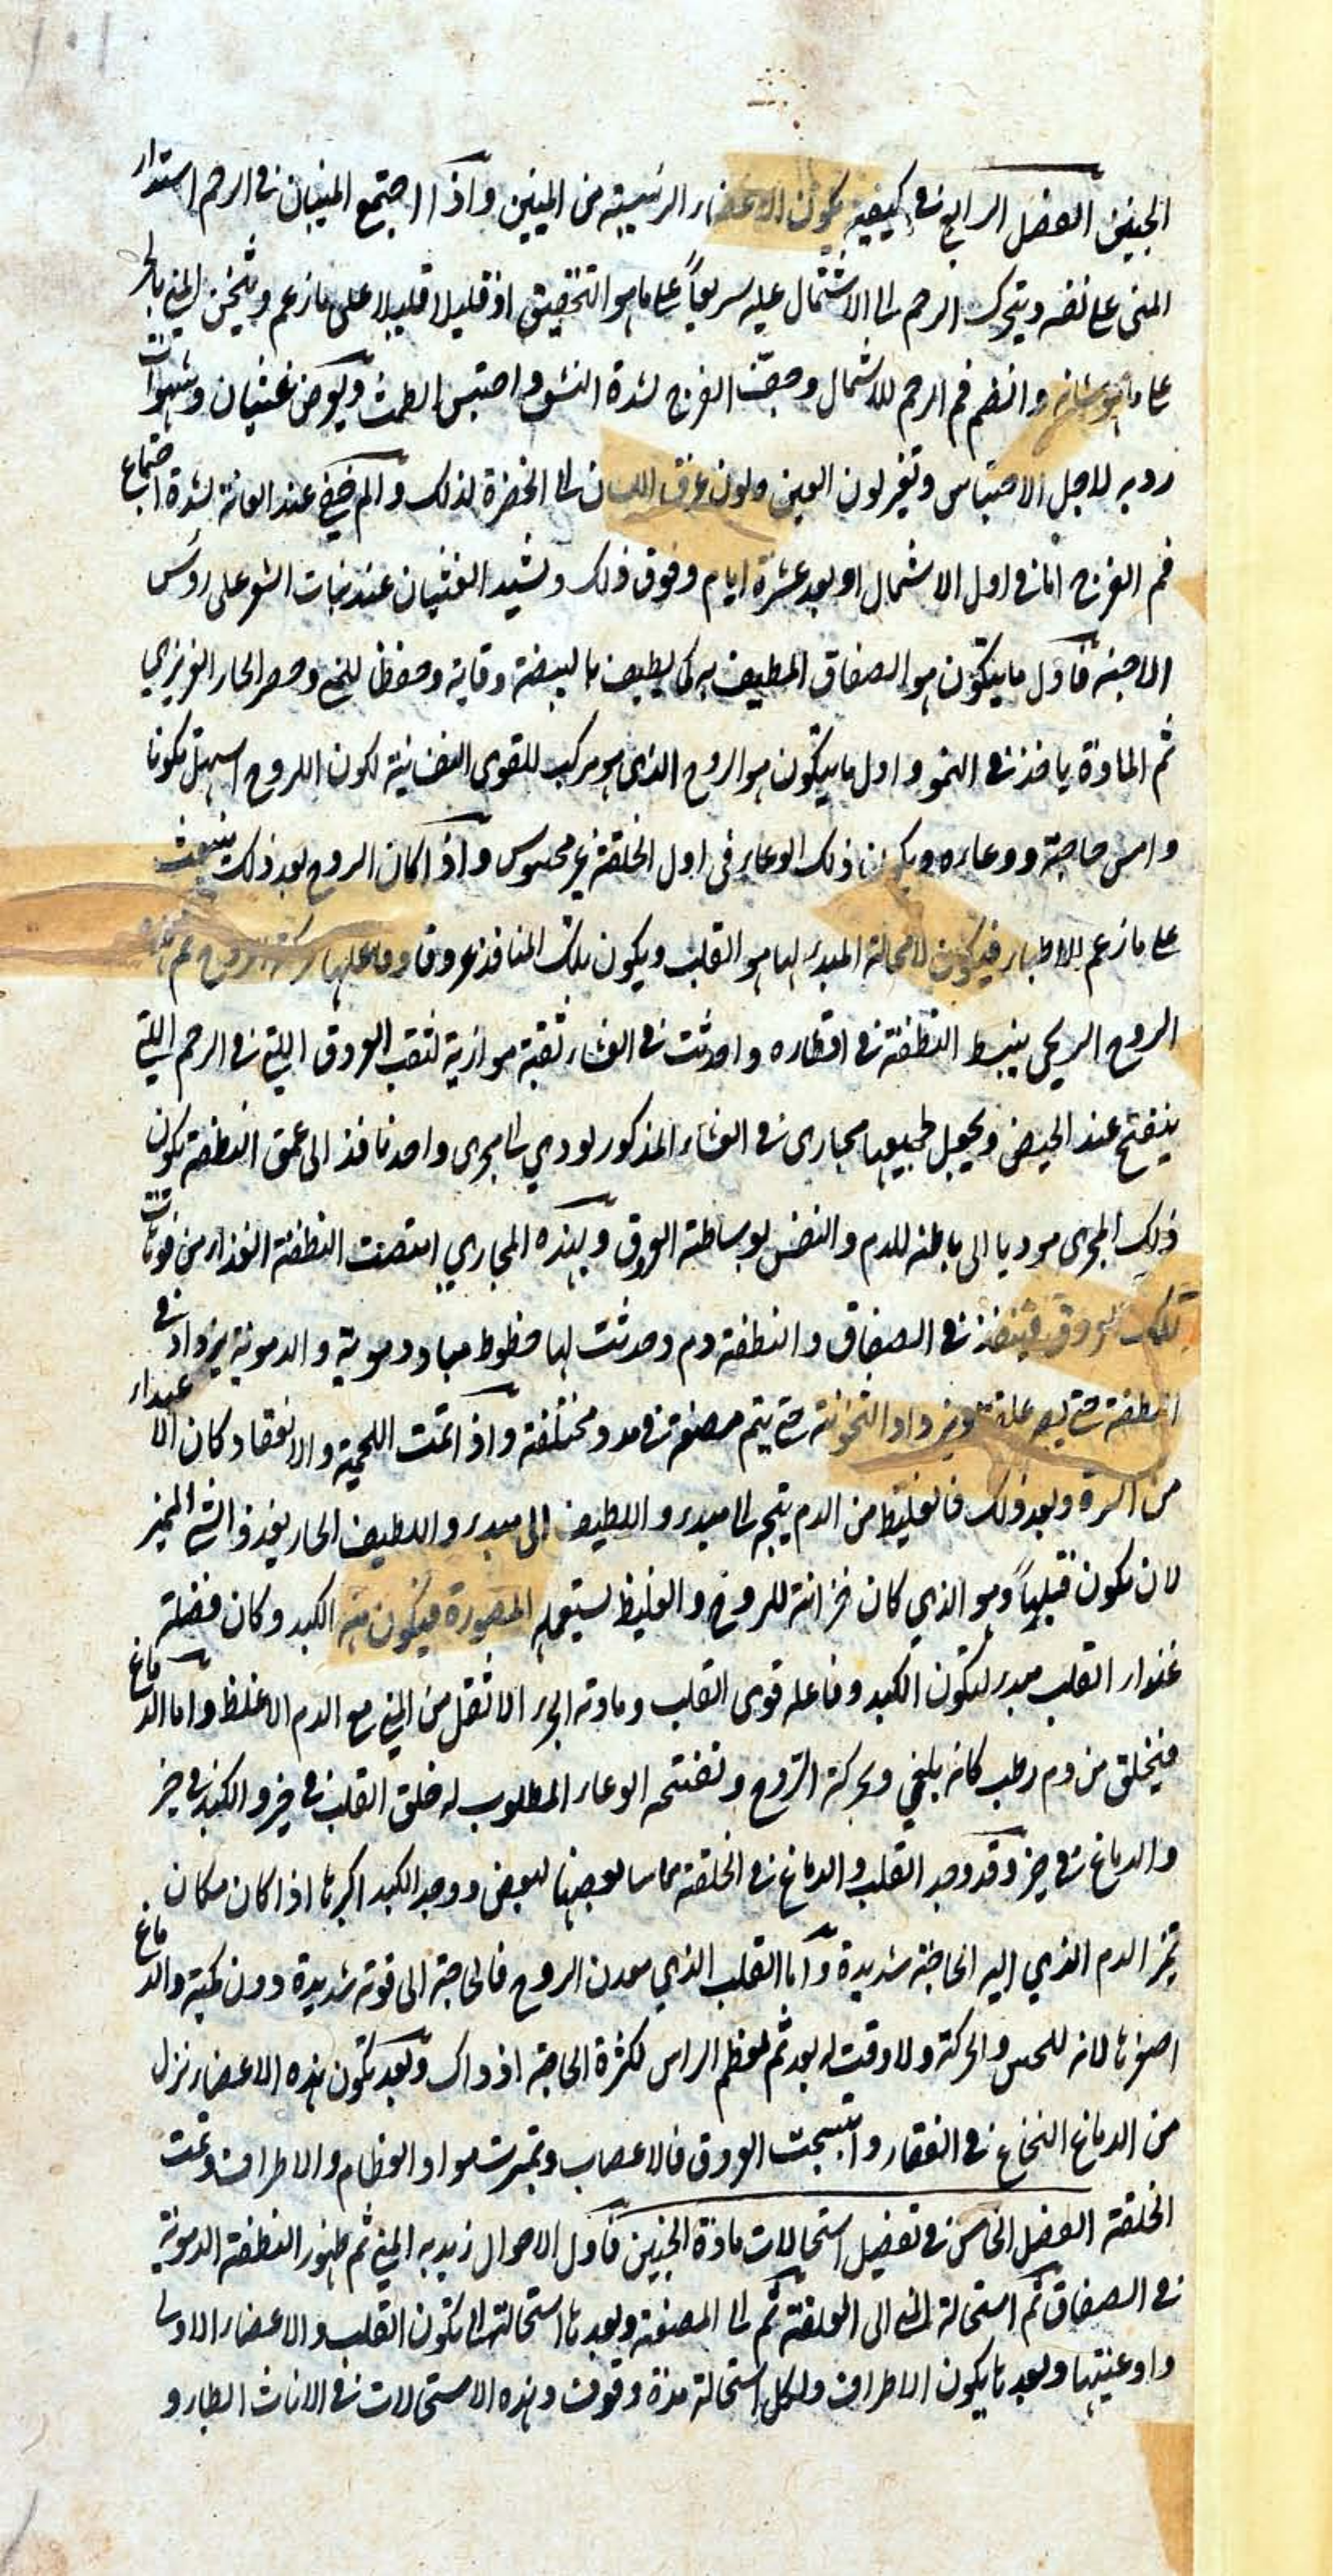 الجنين الفصل الرابع في كيفية تكون الاعضاء الرئيسية من المنيين واذا اجتمع المنيان في الرحم استدار
المني على نفسه ويتحرك الرحم الى الاشتمال عليه سريعاً على ما هو التحقيق او قليلا قليلا على ما زعم ويثخن المني بالحر
على ما هو شانه وانضم فم الرحم للاشتمال وجفت الفرج لشدة النشف واحتبس الطمث ويعرض غثيان وشهوات
ردية لاجل الاحتباس وتغير لون العين ولون عرق اللسان الى الخضرة لذلك والم خفي عند العانة لشدة اجتماع
فم الفرج اما في اول الاشتمال او بعد عشرة ايام وفوق ذلك ويشتد الغثيان عند نبات الشعر على روس
الاجنة فاول ما يتكون هو الصفاق المطيف به كما يطيف بالبيضة وقاية وحفظا للمني وحصر الحار الغريزي
ثم المادة ياخذ في النمو واول ما يتكون هو الروح الذي هو مركب للقوى النفسانية لكون الروح اسهل تكونا
وامس حاجة ووعاءه ويكون ذلك الوعاء في اول الخلقة غير محسوس واذا كان الروح بعد ذلك ينبعث
على ما زعم الاطباء فيكون لا محالة المبدء لها هو القلب ويكون تلك المنافذ عروقا وفاعلها حركة الروح ثم
الروح الريحي ينبسط النطفة في اقطاره واحدثت في الغشاء ثقبة موازية لثقب العروق التي في الرحم التي
ينفتح عند الحيض ويجعل لجميعها مجاري في الغشاء المذكور يودي الى مجرى واحد نافذ الى عمق النطفة يكون
ذلك المجرى موديا الى باطنه للدم والنفس بوساطة العروق وبهذه المجاري امتصت النطفة الغذاء من فوهات
تلك العروق فينفذ في الصفاق والنطفة دم وحدثت لها خطوط مباد دموية والدموية يزداد في
النطفة حتى يصير علقة ويزداد الثخونة حتى يتم مضغة في مدد مختلفة واذا تمت اللحمية والانعقاد كان الا عتداء
من السرة وبعد ذلك فالغليظ من الدم يتجه الى مبدء واللطيف الى مبدء واللطيف الحار يغذو الشيء المتميز
لان تكون قلبياً وهو الذي كان خزانة للروح والغليظ يستعمله المصورة فيكون منه الكبد وكان فضلة
غذاء القلب مبدء لتكون الكبد وفاعله قوى القلب ومادته الجزء الاثقل من المني مع الدم الاغلظ واما الدماغ
فيخلق من دم رطب كانه بلغمي وبحركة الروح وتفتحه الوعاء المطلوب له خلق القلب في حيز والكبد في حيز
والدماغ في حيز وقد وجد القلب والدماغ في الخلقة مماسا بعضها لبعض ووجد الكبد اكبرها اذا كان مكان
تميز الدم الذي اليه الحاجة شديدة واما القلب الذي معدن الروح فالحاجة الى قوته شديدة دون كميته والدماغ
اصغرها لانه للحس والحركة ولا وقت له بعد ثم لعظم الراس لكثرة الحاجة اذ ذاك وبعد تكون هذه الاعضاء نزل
من الدماغ النخاع في الفقار وانتسجت العروق فالاعصاب وتميزت مواد العظام والاطراف وتمت
الخلقة الفصل الخامس في تفصيل استحالات مادة الجنين فاول الاحوال زبدية المني ثم ظهور النطفة الدموية
في الصفاق ثم استحالة المني الى العلقة ثم الى المضغة وبعدها استحالتها الى تكون القلب والاعضاء الاولى
واوعيتها وبعدها يكون الاطراف ولكل استحالة مدة وقوف وهذه الاستحالات في الاناث ابطاء و